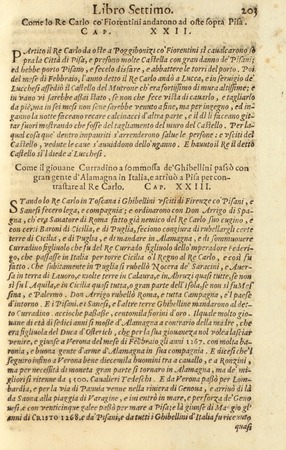 Libro Settimo. 203
Come lo Re Carlo co' Fiorentini andarono ad oste sopra Pisa.
CAP. XXII.
PArtito il Re Carlo da oste a Poggibonizi co' Fiorentini si caualcarono so
pra la Città di Pisa, e presono molte Castella con gran danno de' Pisani; et
ed hebbe porto Pisano, e fecelo disfare, e abbattere le torri del porto. Poi
del mese di Febbraio, l'anno detto il Re Carlo andò a Lucca, e in seruigio de'
Lucchesi assediò il Castello del Mutrone ch'era fortissimo di mura altissime; e
in vano vi sarebbe stati assai, se non che fece vista di cauarlo, e tagliarlo
da piè, ma in sei mesi non sene sarebbe venuto a fine, ma per loro ingegno, e in
ganno la notte faceano recare calcinacci d'altra parte, e il dì li faceano git
tar fuori mostrando che fossen del tagliamento del muro del Castello. Per la
qual cosa que' dentro impauriti s'arrenderono salue le persone: e vsciti del
Castello, vedute le caue s'auuiddono dell'inganno. E hauuto il Re il detto
Castello sì il diede a' Lucchesi.
Come il giouane Curradino a sommossa de' Ghibellini passò con
gran gente d'Alamagna in Italia, e arriuò a Pisa per con-
trastare al Re Carlo. CAP. XXIII.
STando lo Re Carlo in Toscana i Ghibellini vsciti di Firenze co' Pisani, e
Sanesi fecero lega, e compagnia; e ordinarono con Don Arrigo di Spa-
gna, ch'era Sanatore di Roma fatto già nemico del Re Carlo suo cugino, e
con certi Baroni di Cicilia, e di Puglia, feciono congiura di rubellarli certe
terre di Cicilia, e di Puglia, e di mandare in Alamagna, e di sommouere
Curradino figliuolo che fu del Re Currado figliuolo dello'mperadore Federi-
go, che passasse in Italia per torre Cicilia e'l Regno al Re Carlo, e così fu
fatto. Che subitamente in Puglia si rubellò Nocera de' Saracini, e Auer-
sa in terra di Lauoro, e molte terre in Calauria, e in Abruzi quasi tutte, se non
si fu l'Aquila, e in Cicilia quasi tutta, o gran parte dell'isola, se non si fu Mes
sina, e Palermo. Don Arrigo rubellò Roma, e tutta Campagna, e'l paese
d'intorno. E i Pisani, e Sanesi, e l'altre terre Ghibelline mandarono al det-
to Curradino, acciochè passasse, centomila fiorini d'oro. Il quale molto gio-
uane di età di sedici anni si mosse d'Alamagna a contrario della madre, che
era figliuola del Duca d'Osterich, che per la sua giouanezza nol volea lasciar
venire, e giunse a Verona del mese di Febbraio gli anni 1267. con molta ba-
ronia, e buona gente d'arme d'Alamagna in sua compagnia. E dicesi che'l
seguiro infino a Verona bene diecimila huomini tra a cauallo, e a Ronzini,
ma per necessità di moneta gran parte si tornaro in Alamagna, ma de' mi-
gliori si ritenne da 3500. Caualieri Tedeschi. E da Verona passò per Lom-
bardia, e per la via di Pauuia venne nella riuiera di Genoua, e arriuò di là
da Saona alla piaggia di Varagine, e iui entrò in mare, e per forza de' Geno-
uesi, e con venticinque galee passò per mare a Pisa; e là giunse di Maggio gl'
anni di CRISTO 1268, e da' Pisani, e da tutti i Ghibellini d'Italia fu riceuuto
quasi